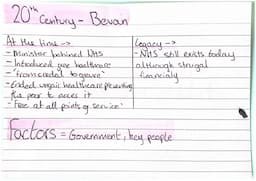 20th Century - Bevan
At the time ->
- Minister behined NHS
- Introduced free healthcare
- 'from cradel to grave'
- Ended unfair healthcare preventing
the poor to access it
- 'Free at all points of service'
Legacy ->
- NHS still exists today
although strugal
financialy
Factors = Government, key people